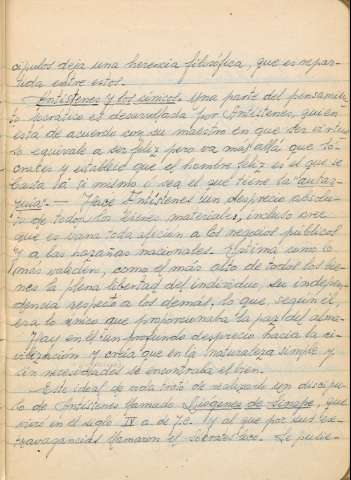 cípulos deja una herencia filosófica, que es repar-
tida entre estos.
Antístenes y los cínicos. Una parte del pensamien-
to socrático es desarrollada por Antístenes, quien
está de acuerdo con su maestro en que ser virtuo
so equivale a ser feliz pero va más allá que Só-
crates y establece que el hombre feliz es el que se
basta a sí mismo o sea el que tiene la "autar-
quia".— Hace Antístenes un desprecio absolu-
to de todos los bienes materiales, incluso cree
que es vana toda afición a los negocios públicos
y a las hazañas nacionales. Estima como lo
más valedero, como el más alto de todos los bie-
nes la plena libertad del individuo, su indepen-
dencia respecto a los demás, lo que, según él,
era lo único que proporcionaba la paz del alma.
Hay en él un profundo desprecio hacia la ci-
vilización y creía que en la naturaleza simple y
sin necesidades se encontraba el bien.
Este ideal de vida trató de realizarlo un discípu-
lo de Antístenes llamado Diógenes de Sinope, que
vivió en el siglo IV a de J.C. y al que por sus ex-
travagancias llamaron el Sócrates loco. Se